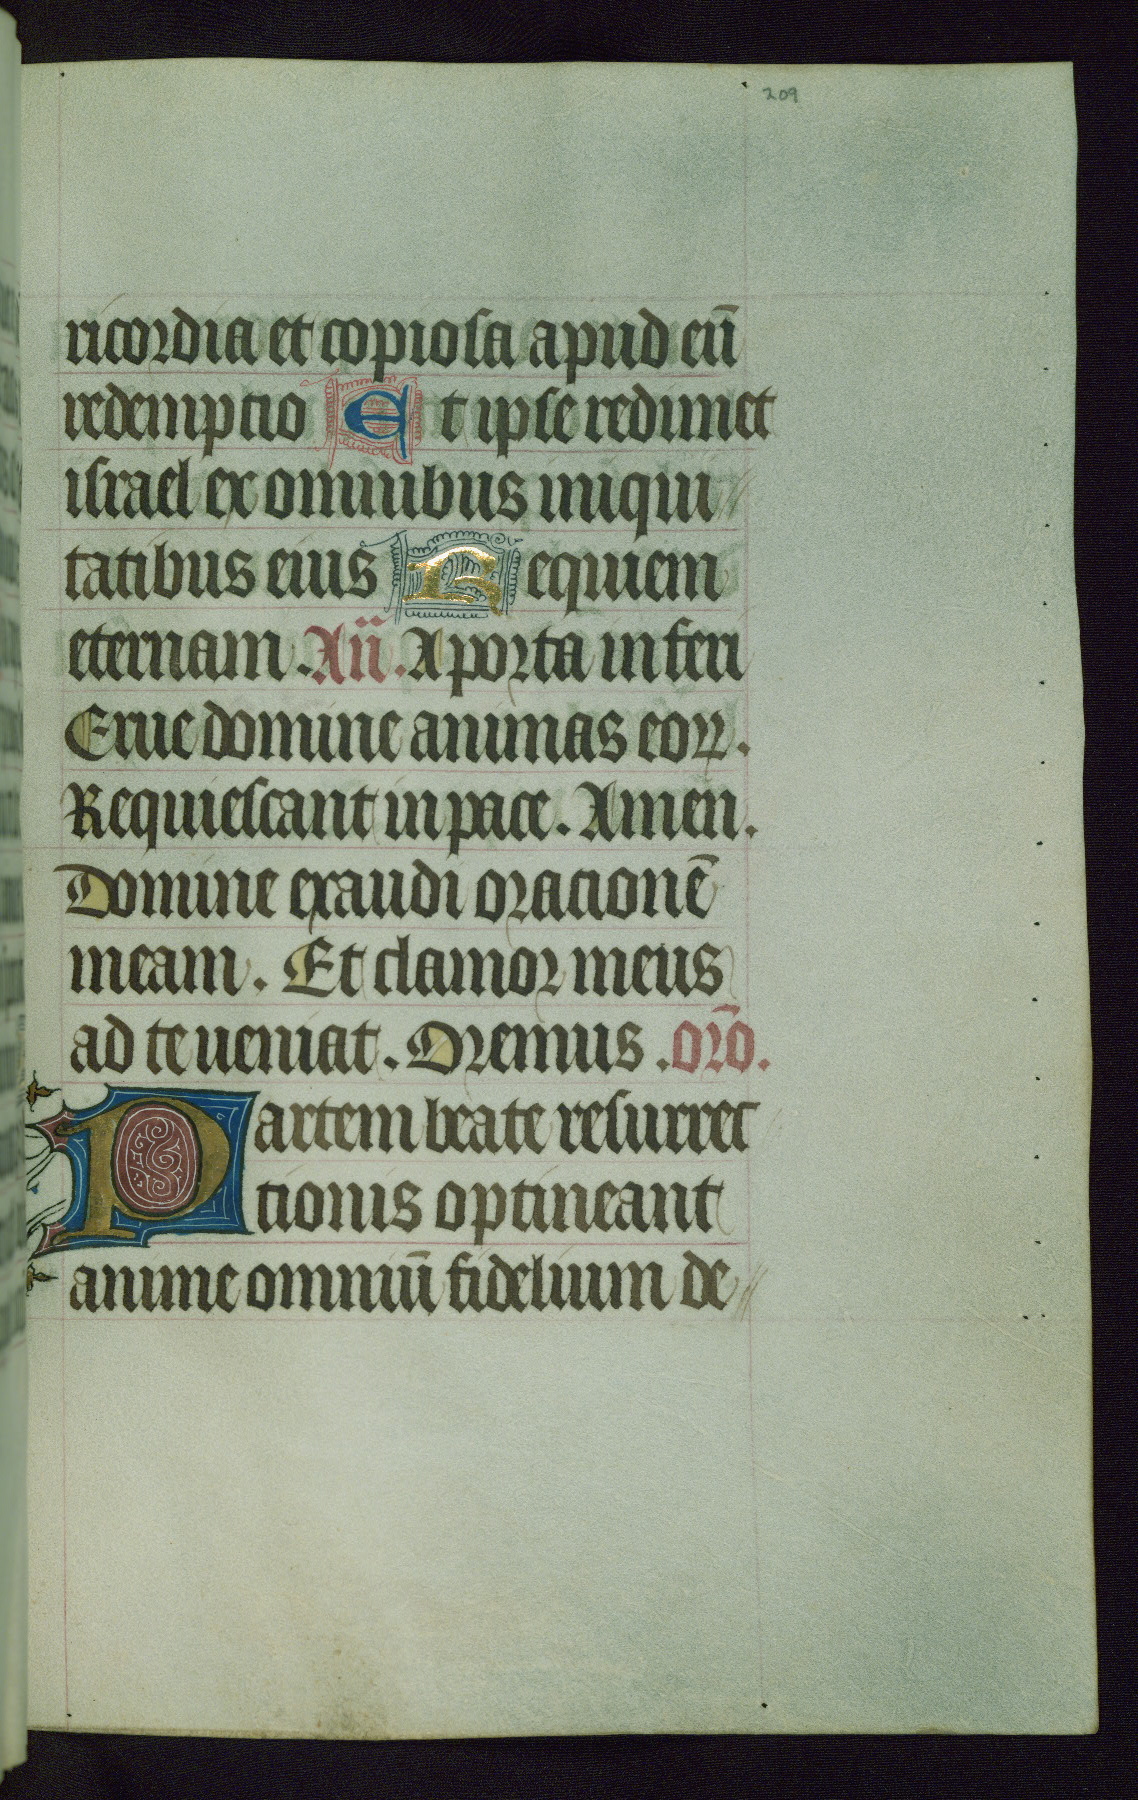 209
ricordia et copiosa apud eū
redemptio Et ipse redimet
israel ex omnibus iniqui
tatibus eius Requiem
eternam. An̄. A porta inferi
Erue domine animas eoꝝ.
Requiescant in pace. Amen.
Domine exaudi orationē
meam. Et clamor meus
ad te ueniat. Oremus. or̄o.
Partem beate resurrec
tionis optineant
anime omniū fidelium de